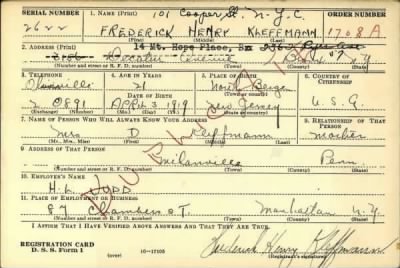 SERIAL NUMBER 1. NAME (Print) 101 Cooper St. N.Y.C. ORDER NUMBER
2622 FREDERICK HENRY KLEFFMANN 1708A
(First) (Middle) (Last)
2. ADDRESS (Print) 14 Mt. Hope Place, Bx
Decatur Avenue Bronx N.Y.
(Number and street or R. F. D. number) (Town) (County) (State)
3. TELEPHONE 4. AGE IN YEARS 5. PLACE OF BIRTH 6. COUNTRY OF CITIZENSHIP
Olinville 21 North Bergen
DATE OF BIRTH (Town or county)
2 0891 APRIL 3 1919 New Jersey U.S.A.
(Exchange) (Number) (Mo.) (Day) (Yr.) (State or country)
7. NAME OF PERSON WHO WILL ALWAYS KNOW YOUR ADDRESS 8. RELATIONSHIP OF THAT PERSON
Mrs D Kleffmann Mother
(Mr., Mrs., Miss) (First) (Middle) (Last)
9. ADDRESS OF THAT PERSON
Milanville Penn.
(Number and street or R. F. D. number) (Town) (County) (State)
10. EMPLOYER'S NAME
H. L. JUDD
11. PLACE OF EMPLOYMENT OR BUSINESS
87 Chambers ST. Manhattan N.Y.
(Number and street or R. F. D. number) (Town) (County) (State)
I AFFIRM THAT I HAVE VERIFIED ABOVE ANSWERS AND THAT THEY ARE TRUE.
REGISTRATION CARD Frederick Henry Kleffmann
D. S. S. Form 1 (over) 16—17105 (Registrant's signature)